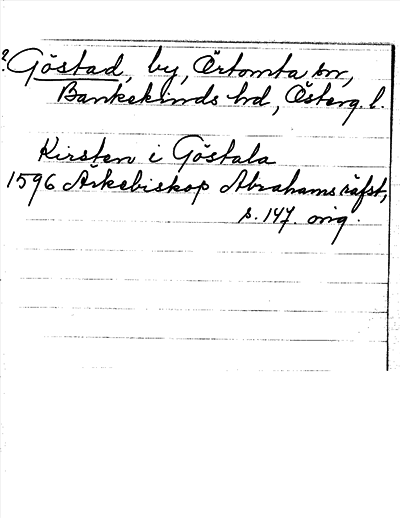 ? Göstad, by, Örtomta sn,
Bankekinds hd, Österg. l.
Kirsten i Göstala
1596 Ärkebiskop Abrahams räfst,
s. 147. orig.